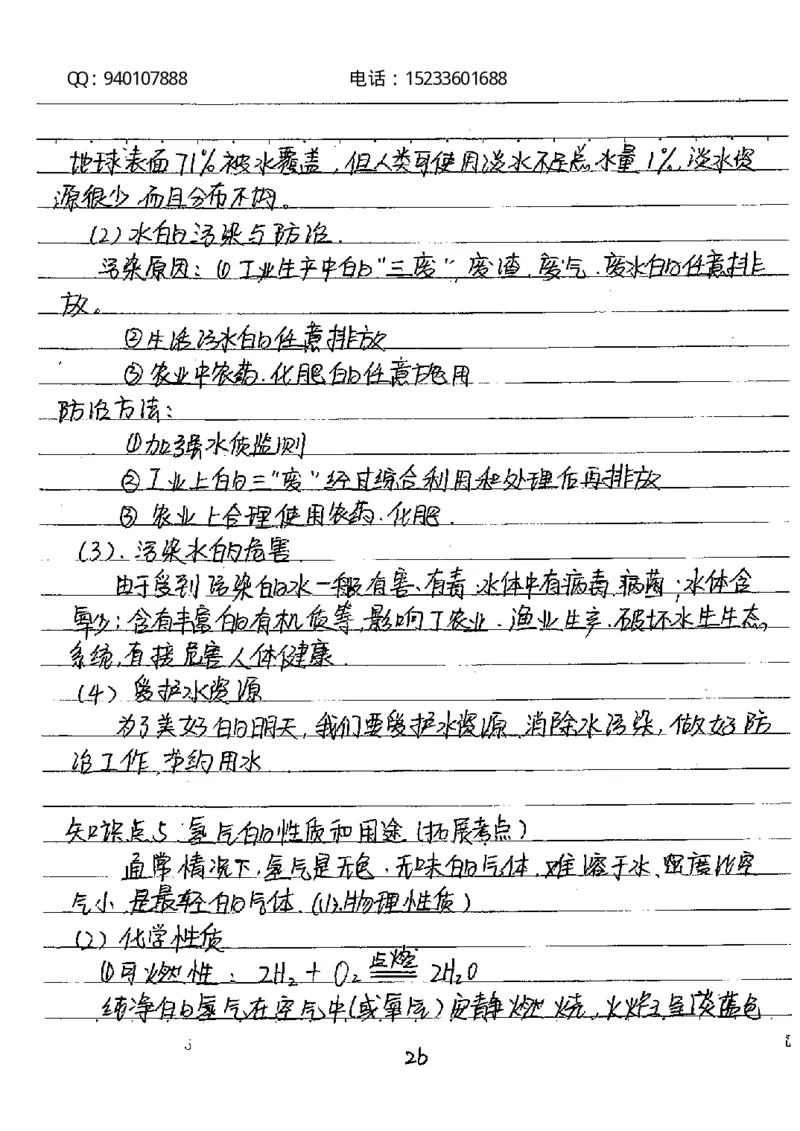 QQ：940107888 电话：15233601688
地球表面71%被水覆盖，但人类可使用淡水不足总水量1%，淡水资
源很少而且分布不均。
(2)水的污染与防治.
污染原因：①工业生产中的“三废”，废渣、废气、废水的任意排
放。
②生活污水的任意排放
③农业中农药、化肥的任意施用
防治方法：
①加强水质监测
②工业上的三“废”经过综合利用和处理后再排放
③ 农业上合理使用农药、化肥.
(3). 污染水的危害
由于受到污染的水一般有害、有毒；水体中有病毒、病菌；水体含
氧少；含有丰富的有机质等，影响了农业、渔业生产、破坏水生生态
系统，直接危害人体健康.
(4) 爱护水资源
为了美好的明天，我们要爱护水资源、消除水污染，做好防
治工作、节约用水
知识点5：氢气的性质和用途（拓展考点）
通常情况下，氢气是无色、无味的气体，难溶于水、密度比空
气小，是最轻的气体.((1).物理性质)
(2) 化学性质
①可燃性：2H₂ + O₂ 点燃 2H₂O
纯净的氢气在空气中(或氧气)安静燃烧，火焰呈淡蓝色
26